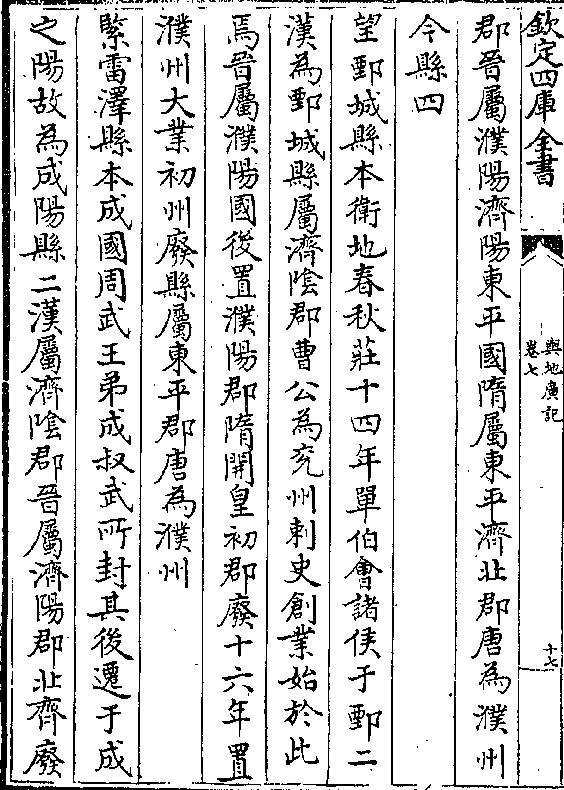 欽定四庫全書
輿地廣記
卷七
十七
郡晉屬濮陽濟陽東平國隋屬東平濟北郡唐為濮州
今縣四
望鄄城縣本衛地春秋莊十四年單伯會諸侯于鄄二
漢為鄄城縣屬濟陰郡曹公為兖州刺史創業始於此
焉晉屬濮陽國後置濮陽郡隋開皇初郡廢十六年置
濮州大業初州廢縣屬東平郡唐為濮州
緊雷澤縣本成國周武王弟成叔武所封其後遷于成
之陽故為成陽縣二漢屬濟陰郡晉屬濟陽郡北齊廢